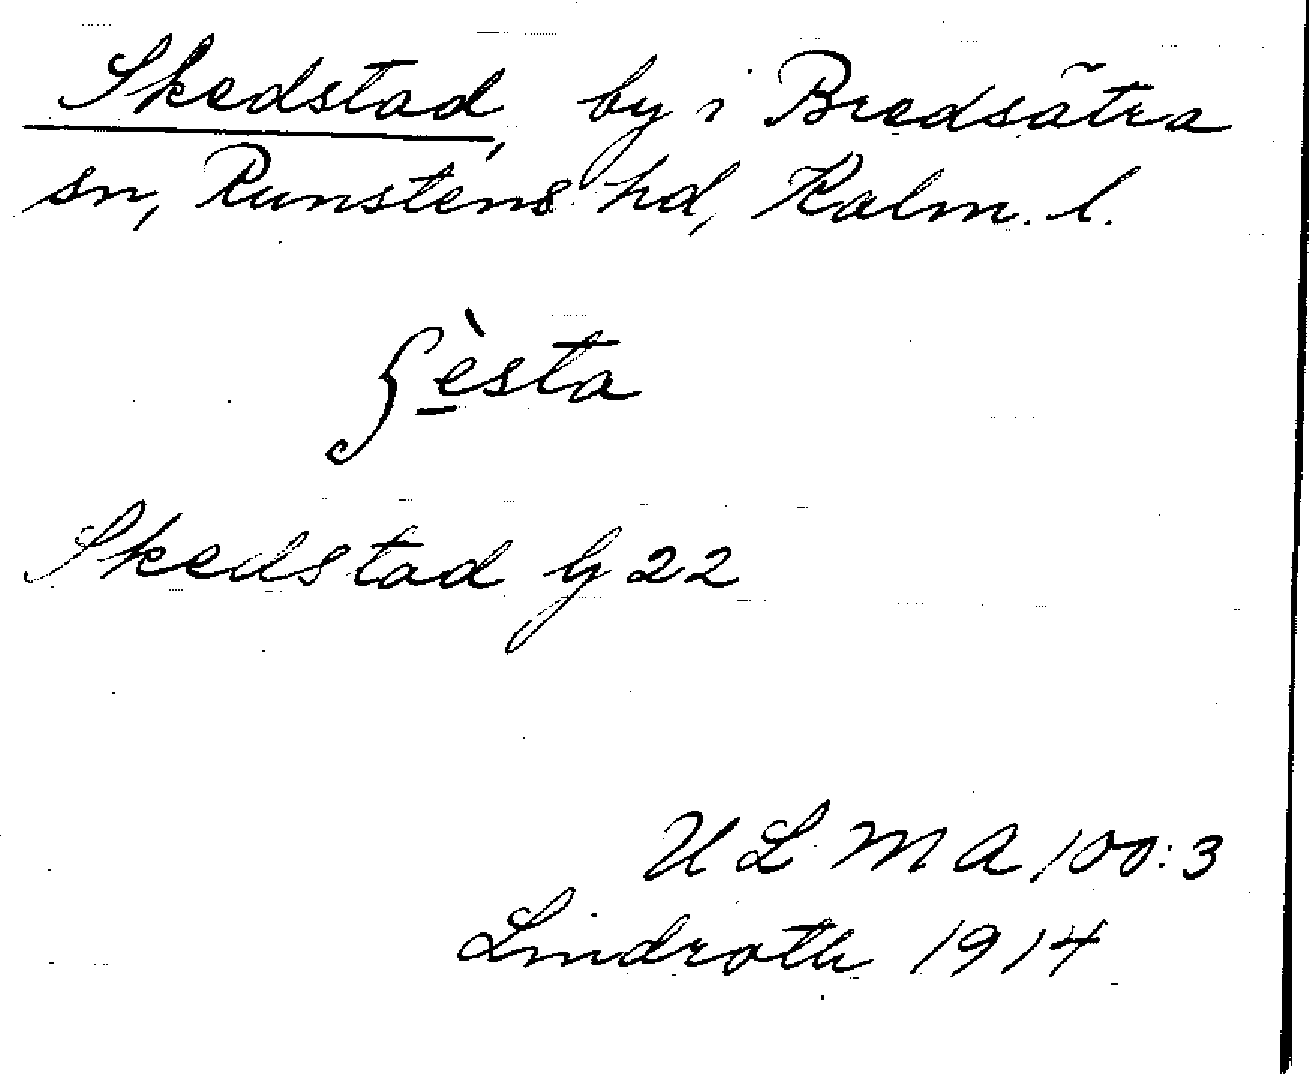 Skedstad, by i Bredsätra
sn, Runstens hd, Kalm. l.
ʃèsta
Skedstad G 22
ULMA 100:3
Lindroth 1914